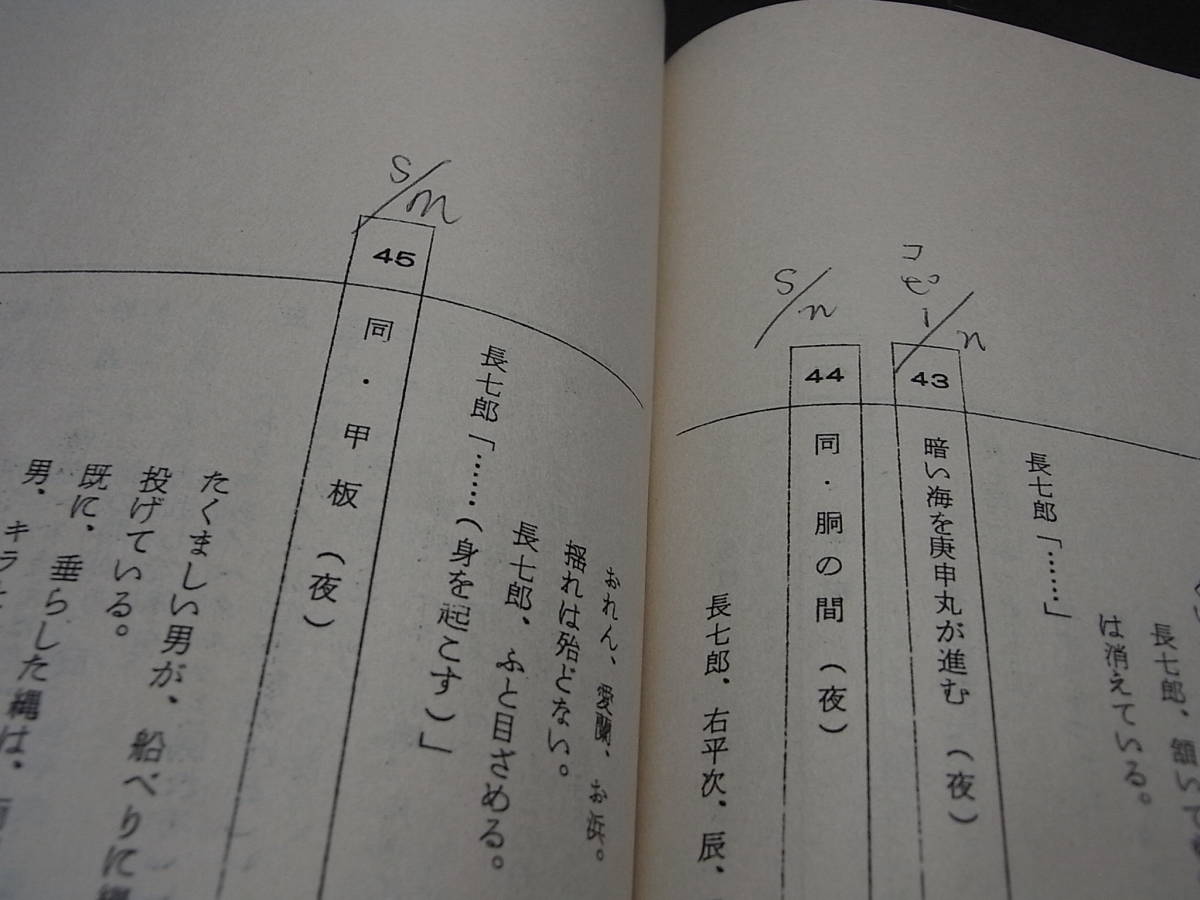 長七郎、額いて
は消えている。
長七郎「……」
コピー/n
43
暗い海を庚申丸が進む(夜)
S/n
44
同・胴の間(夜)
長七郎、右平次、辰、
おれん、愛蘭、お浜。
揺れは殆どない。
長七郎、ふと目ざめる。
長七郎「……(身を起こす)」
S/m
45
同・甲板(夜)
たくましい男が、船べりに縄
投げている。
既に、垂らした縄は、
男、キラ